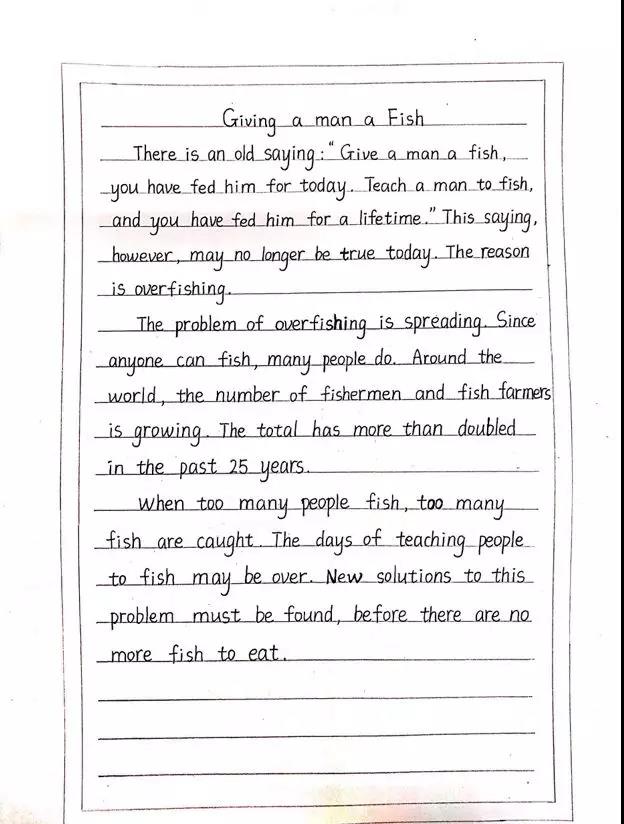 Giving a man a Fish
There is an old saying: “Give a man a fish,
you have fed him for today. Teach a man to fish,
and you have fed him for a lifetime.” This saying,
however, may no longer be true today. The reason
is overfishing.
The problem of overfishing is spreading. Since
anyone can fish, many people do. Around the
world, the number of fishermen and fish farmers
is growing. The total has more than doubled
in the past 25 years.
When too many people fish, too many
fish are caught. The days of teaching people
to fish may be over. New solutions to this
problem must be found, before there are no
more fish to eat.